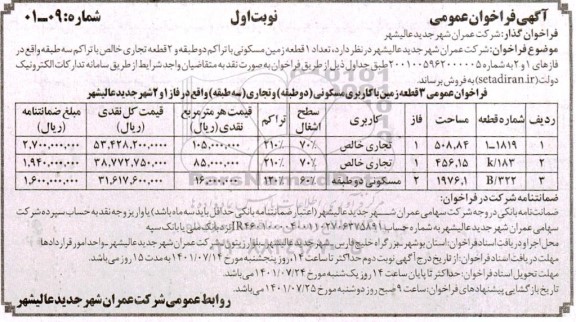 آگهی فراخوان عمومی نوبت اول شماره: ۰۹-۰۱
فراخوان گذار: شرکت عمران شهر جدید عالیشهر
موضوع فراخوان: شرکت عمران شهر جدید عالیشهر در نظر دارد، تعداد ۱ قطعه زمین مسکونی با تراکم دو طبقه و ۲ قطعه تجاری خالص با تراکم سه طبقه واقع در
فازهای ۱ و ۲ به شماره ۲۰۰۱۰۰۵۹۶۲۰۰۰۰۰۵ طبق جداول ذیل از طریق فراخوان به صورت نقد به متقاضیان واجد شرایط از طریق سامانه تدارکات الکترونیک
دولت (setadiran.ir) به فروش برساند.
فراخوان عمومی ۳ قطعه زمین با کاربری مسکونی (دو طبقه) و تجاری (سه طبقه) واقع در فاز ۱ و ۲ شهر جدید عالیشهر
ردیف شماره قطعه مساحت فاز کاربری سطح اشغال تراکم قیمت هر متر مربع نقدی (ریال) قیمت کل نقدی (ریال) مبلغ ضمانتنامه (ریال)
۱ ۱۸۱۹-۱ ۵۰۸,۸۴ ۱ تجاری خالص ۷۰% ۲۱۰% ۱۰۵,۰۰۰,۰۰۰ ۵۳,۴۲۸,۲۰۰,۰۰۰ ۲,۷۰۰,۰۰۰,۰۰۰
۲ k/۱۸۳ ۴۵۶,۱۵ ۱ تجاری خالص ۷۰% ۲۱۰% ۸۵,۰۰۰,۰۰۰ ۳۸,۷۷۲,۷۵۰,۰۰۰ ۱,۹۴۰,۰۰۰,۰۰۰
۳ B/۳۲۲ ۱۹۷۶,۱ ۲ مسکونی دو طبقه ۶۰% ۱۲۰% ۱۶,۰۰۰,۰۰۰ ۳۱,۶۱۷,۶۰۰,۰۰۰ ۱,۶۰۰,۰۰۰,۰۰۰
ضمانتنامه شرکت در فراخوان:
ضمانت نامه بانکی در وجه شرکت سهامی عمران شهر جدید عالیشهر (اعتبار ضمانتنامه بانکی حداقل باید سه ماه باشد) یا واریز وجه نقد به حساب سپرده شرکت
سهامی عمران شهر جدید عالیشهر به شماره حساب نزد بانک ملی یا بانک سپه
محل اجرا و دریافت اسناد فراخوان: استان بوشهر - بزرگراه خلیج فارس - شهر جدید عالیشهر - شرکت عمران شهر جدید عالیشهر - واحد امور قراردادها
مهلت دریافت اسناد فراخوان: از تاریخ درج آگهی نوبت دوم حداکثر تا ساعت ۱۴ روز پنجشنبه مورخ ۱۴۰۱/۰۷/۱۴ به مدت ۱۵ روز می باشد.
مهلت تحویل اسناد فراخوان: حداکثر تا پایان ساعت ۱۴ روز یکشنبه مورخ ۱۴۰۱/۰۷/۲۴ می باشد.
تاریخ بازگشایی پیشنهادهای فراخوان: ساعت ۹ صبح روز دوشنبه مورخ ۱۴۰۱/۰۷/۲۵ می باشد.
روابط عمومی شرکت عمران شهر جدید عالیشهر